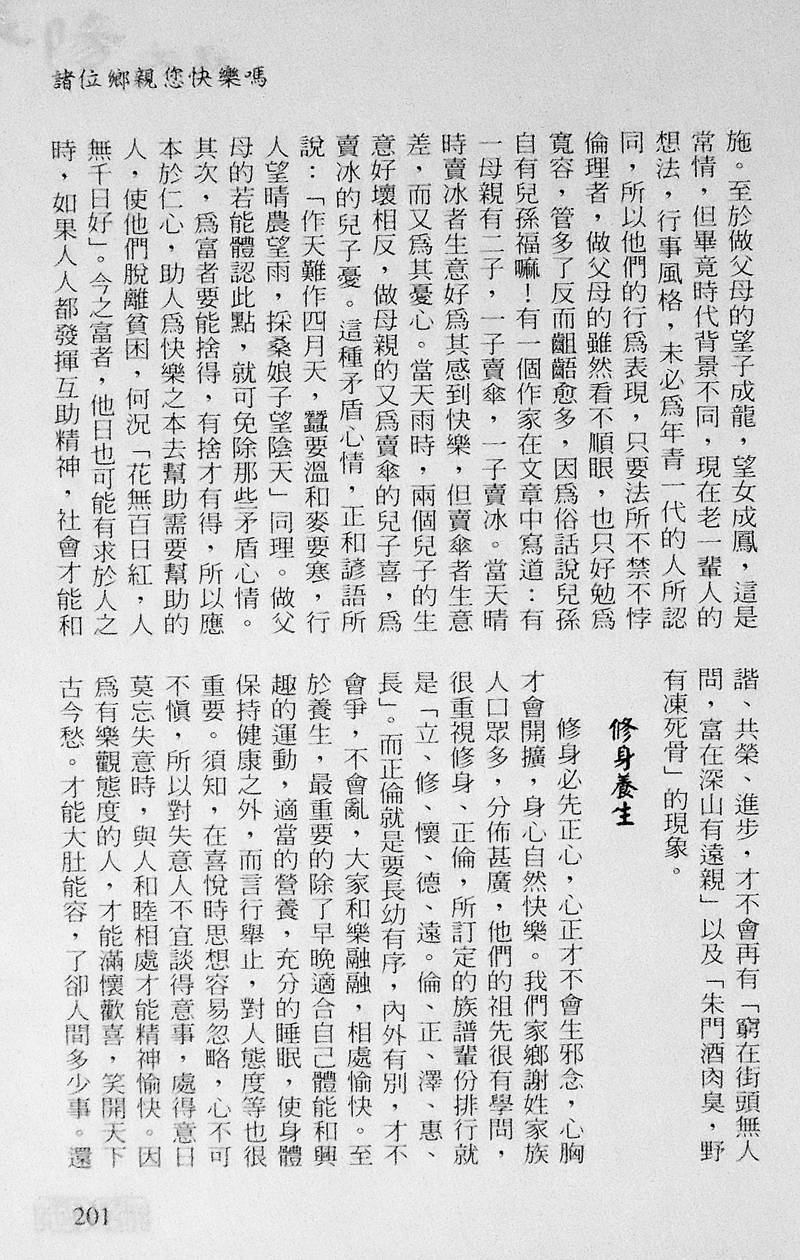 諸位鄉親您快樂嗎
施。至於做父母的望子成龍，望女成鳳，這是
常情，但畢竟時代背景不同，現在老一輩人的
想法，行事風格，未必爲年青一代的人所認
同，所以他們的行爲表現，只要法所不禁不悖
倫理者，做父母的雖然看不順眼，也只好勉爲
寬容，管多了反而齟齬愈多，因爲俗話說兒孫
自有兒孫福嘛！有一個作家在文章中寫道：有
一母親有二子，一子賣傘，一子賣冰。當天晴
時賣冰者生意好爲其感到快樂，但賣傘者生意
差，而又爲其憂心。當天雨時，兩個兒子的生
意好壞相反，做母親的又爲賣傘的兒子喜，爲
賣冰的兒子憂。這種矛盾心情，正和諺語所
說：「作天難作四月天，蠶要溫和麥要寒，行
人望晴農望雨，採桑娘子望陰天」同理。做父
母的若能體認此點，就可免除那些矛盾心情。
其次，爲富者要能捨得，有捨才有得，所以應
本於仁心，助人爲快樂之本去幫助需要幫助的
人，使他們脫離貧困，何況「花無百日紅，人
無千日好」。今之富者，他日也可能有求於人之
時，如果人人都發揮互助精神，社會才能和
諧、共榮、進步，才不會再有「窮在街頭無人
問，富在深山有遠親」以及「朱門酒肉臭，野
有凍死骨」的現象。
修身養生
修身必先正心，心正才不會生邪念，心胸
才會開擴，身心自然快樂。我們家鄉謝姓家族
人口眾多，分佈甚廣，他們的祖先很有學問，
很重視修身、正倫，所訂定的族譜輩份排行就
是「立、修、懷、德、遠。倫、正、澤、惠、
長」。而正倫就是要長幼有序，內外有別，才不
會爭，不會亂，大家和樂融融，相處愉快。至
於養生，最重要的除了早晚適合自己體能和興
趣的運動，適當的營養，充分的睡眠，使身體
保持健康之外，而言行舉止，對人態度等也很
重要。須知，在喜悅時思想容易忽略，心不可
不愼，所以對失意人不宜談得意事，處得意日
莫忘失意時，與人和睦相處才能精神愉快。因
爲有樂觀態度的人，才能滿懷歡喜，笑開天下
古今愁。才能大肚能容，了卻人間多少事。還
201